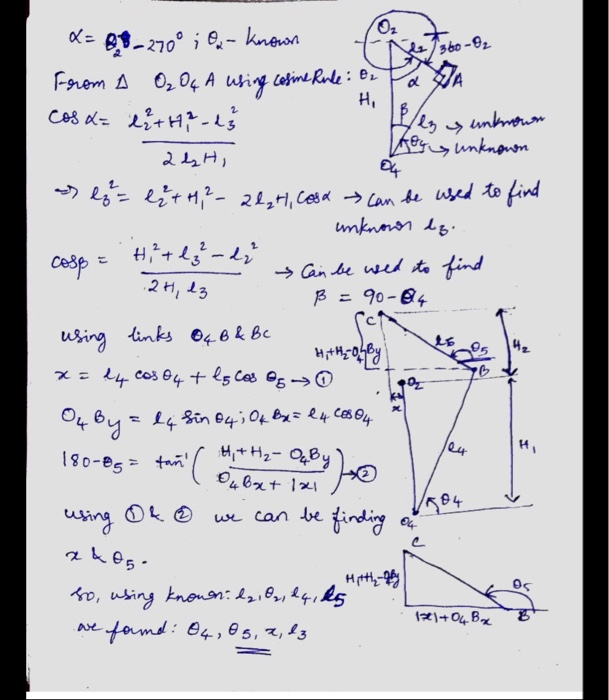 α = θ₂ - 270° ; θ₂ - known
From Δ O₂O₄A using cosine Rule:
cos α = (l₂² + H₁² - l₃²) / (2 l₂ H₁)
⇒ l₃² = l₂² + H₁² - 2l₂H₁ cosα → can be used to find
unknown l₃.
cosβ = (H₁² + l₃² - l₂²) / (2 H₁ l₃) → Can be used to find
β = 90 - θ₄
O₂
l₂
360-θ₂
θ₂
α
A
H₁
β
l₃ → unknown
θ₄ → unknown
O₄
using links O₄B & BC
x = l₄ cos θ₄ + l₅ cos θ₅ → ①
O₄By = l₄ sin θ₄ ; O₄Bx = l₄ cos θ₄
180-θ₅ = tan⁻¹ ( (H₁ + H₂ - O₄By) / (O₄Bx + |x|) ) → ②
using ① & ② we can be finding
x & θ₅.
so, using known: l₂, θ₂, l₄, l₅
we found: θ₄, θ₅, x, l₃
C
H₁+H₂-O₄By
l₅
θ₅
H₂
B
O₂
x
l₄
H₁
θ₄
O₄
C
H₁+H₂-O₄By
θ₅
|x|+O₄Bx
B